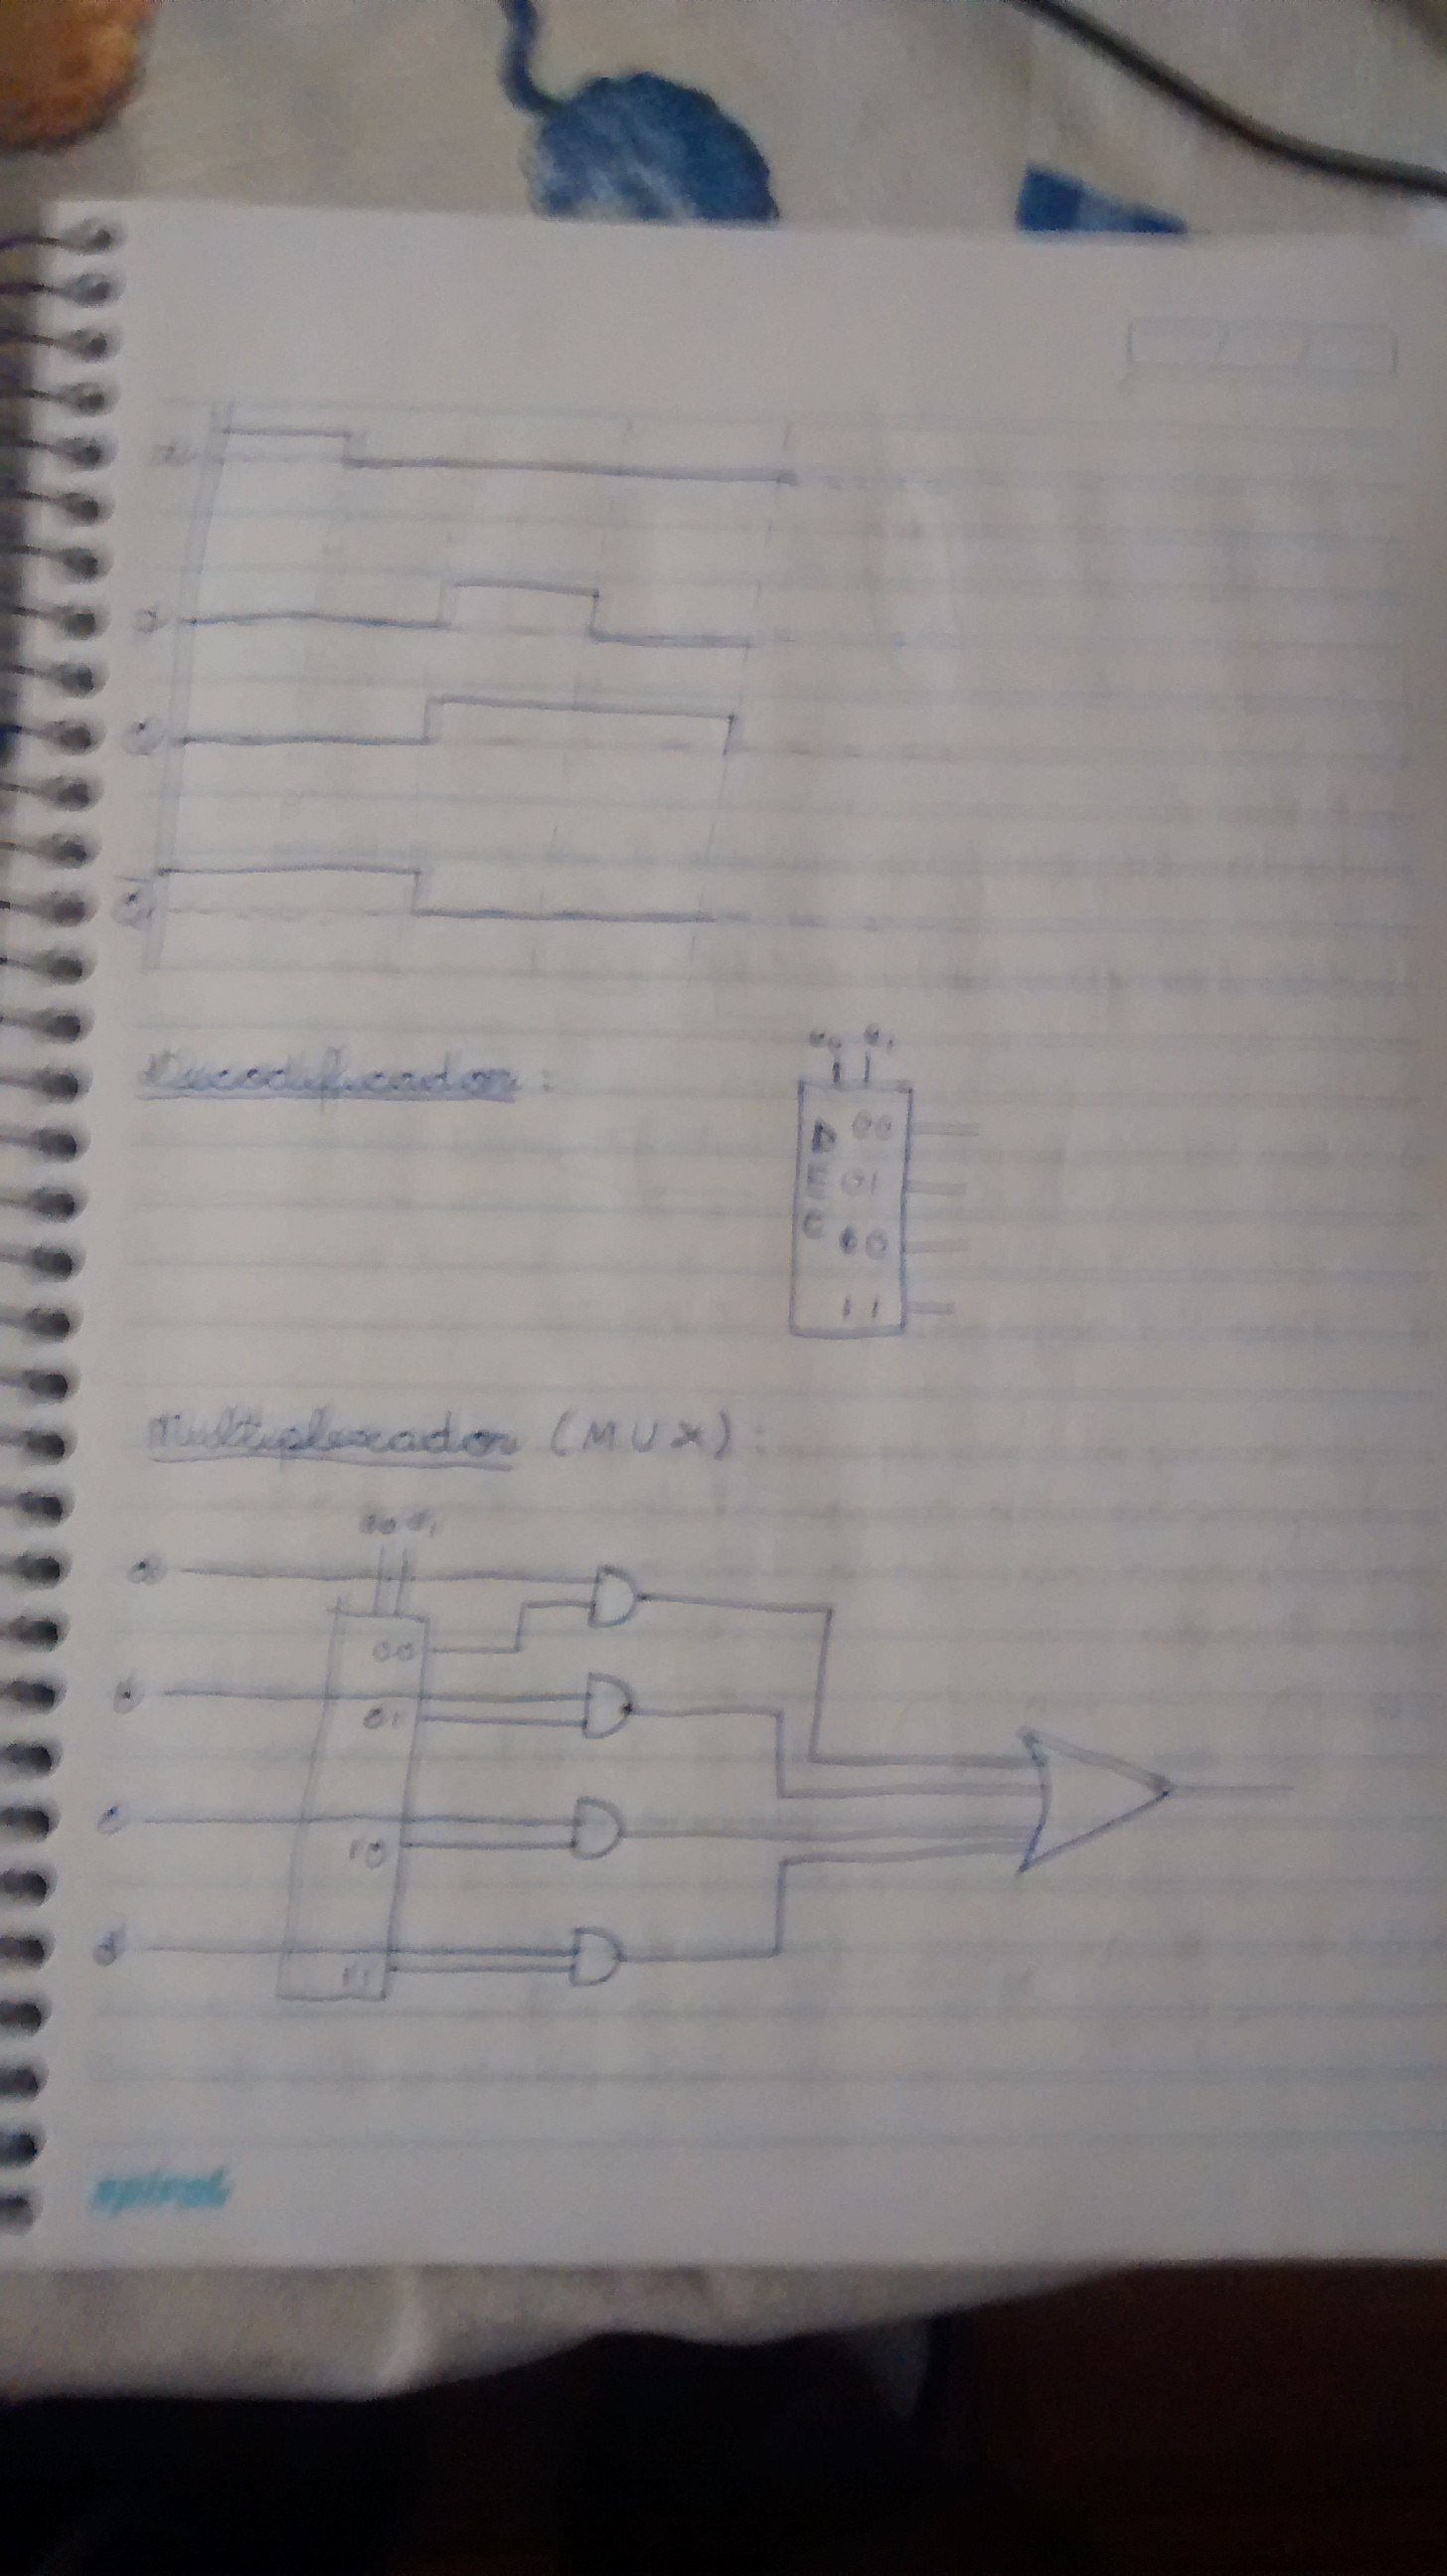 Q
Decodificador:
e0 e1
D 00
E 01
C 10
11
Multiplexador (MUX):
e0 e1
a
00
b
01
c
10
d
11
spiral